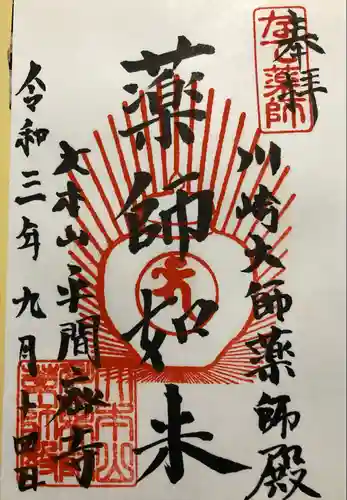 奉拝
なで薬師
川崎大師薬師殿
薬師如来
大本山平間寺
令和三年九月十四日